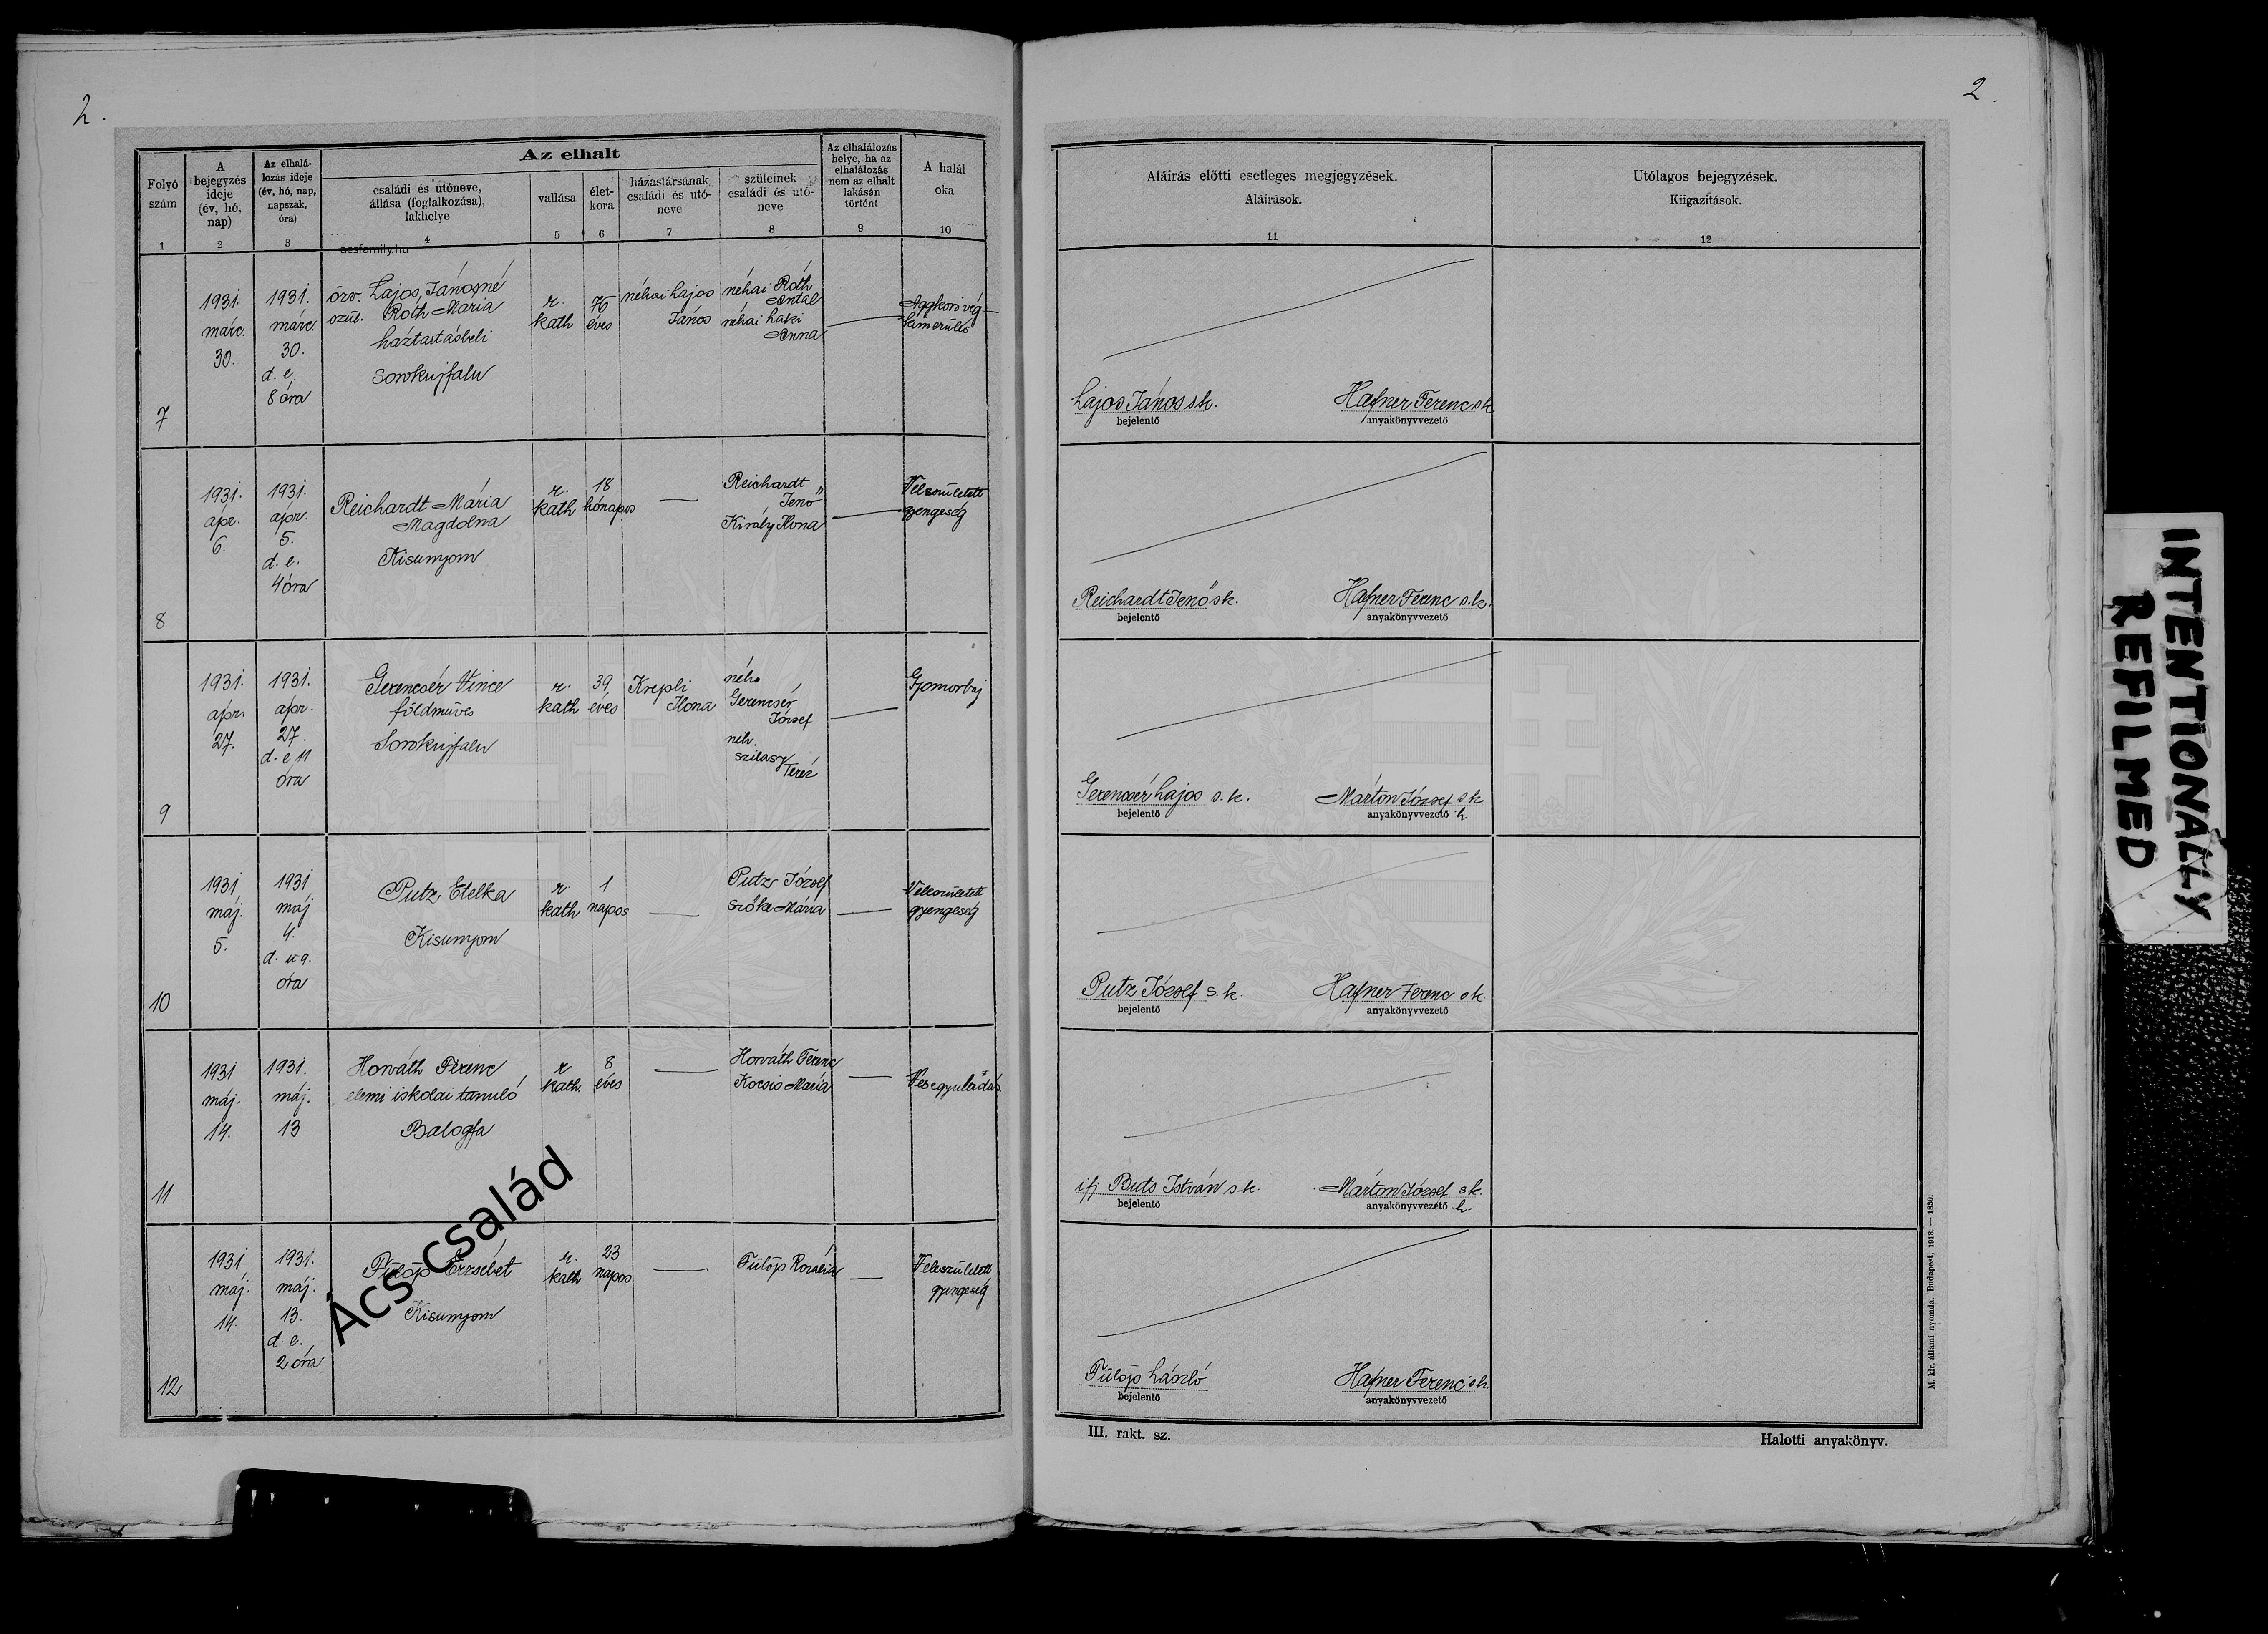 2.
2.
Folyó
szám
1
A
bejegyzés
ideje
(év, hó,
nap)
2
Az elhalá-
lozás ideje
(év, hó, nap,
napszak,
óra)
3
Az elhalt
családi és utóneve,
állása (foglalkozása),
lakhelye
4
vallása
5
élet-
kora
6
házastársának
családi és utó-
neve
7
szüleinek
családi és utó-
neve
8
Az elhalálozás
helye, ha az
elhalálozás
nem az elhalt
lakásán
történt
9
A halál
oka
10
Aláírás előtti esetleges megjegyzések.
Aláírások.
11
Utólagos bejegyzések.
Kiigazítások.
12
acsfamily.hu
7
1931.
márc.
30.
1931.
márc.
30.
d. e.
8 óra
özv. Lajos Jánosné
szül. Róth Mária
háztartásbeli
Sorokujfalu
r.
kath
76
éves
néhai Lajos
János
néhai Róth
Antal
néhai Laki
Anna
Aggkori vég-
kimerülés
Lajos János sk.
bejelentő
Hafner Ferenc sk
anyakönyvvezető
8
1931.
ápr.
6.
1931.
ápr.
5.
d. e.
4 óra
Reichardt Mária
Magdolna
Kisunyom
r.
kath
18
hónapos
Reichardt
Jenő
Király Ilona
Velszületett
gyengeség
Reichardt Jenő sk.
bejelentő
Hafner Ferenc s.k.
anyakönyvvezető
9
1931.
ápr.
27.
1931.
ápr.
27.
d. e 11
óra
Gerencsér Vince
földműves
Sorokujfalu
r.
kath
39
éves
Krepli
Ilona
néh.
Gerencsér
József
néh.
Szilasy
Teréz
Gyomorbaj
Gerencsér Lajos s. k.
bejelentő
Márton József sk
anyakönyvvezető h.
10
1931
máj.
5.
1931
máj
4.
d. u 9.
óra
Putz Etelka
Kisunyom
r.
kath
1
napos
Putz József
Szőke Mária
Veleszületett
gyengeség
Putz József s. k.
bejelentő
Hafner Ferenc sk.
anyakönyvvezető
11
1931
máj.
14.
1931.
máj.
13
Horváth Ferenc
elemi iskolai tanuló
Balogfa
r
kath.
8
éves
Horváth Ferenc
Kocsis Mária
Vesegyuladás
ifj Buts István s.k.
bejelentő
Márton József sk.
anyakönyvvezető h.
12
1931
máj.
14.
1931.
máj.
13.
d. e.
2 óra
Fülöp Erzsébet
Kisunyom
r.
kath
23
napos
Fülöp Rozália
Veleszületett
gyengeség
Fülöp László
bejelentő
Hafner Ferenc sk.
anyakönyvvezető
Ács család
III. rakt. sz.
Halotti anyakönyv.
M. kir. állami nyomda. Budapest, 1918. — 1830.
INTENTIONALLY
REFILMED